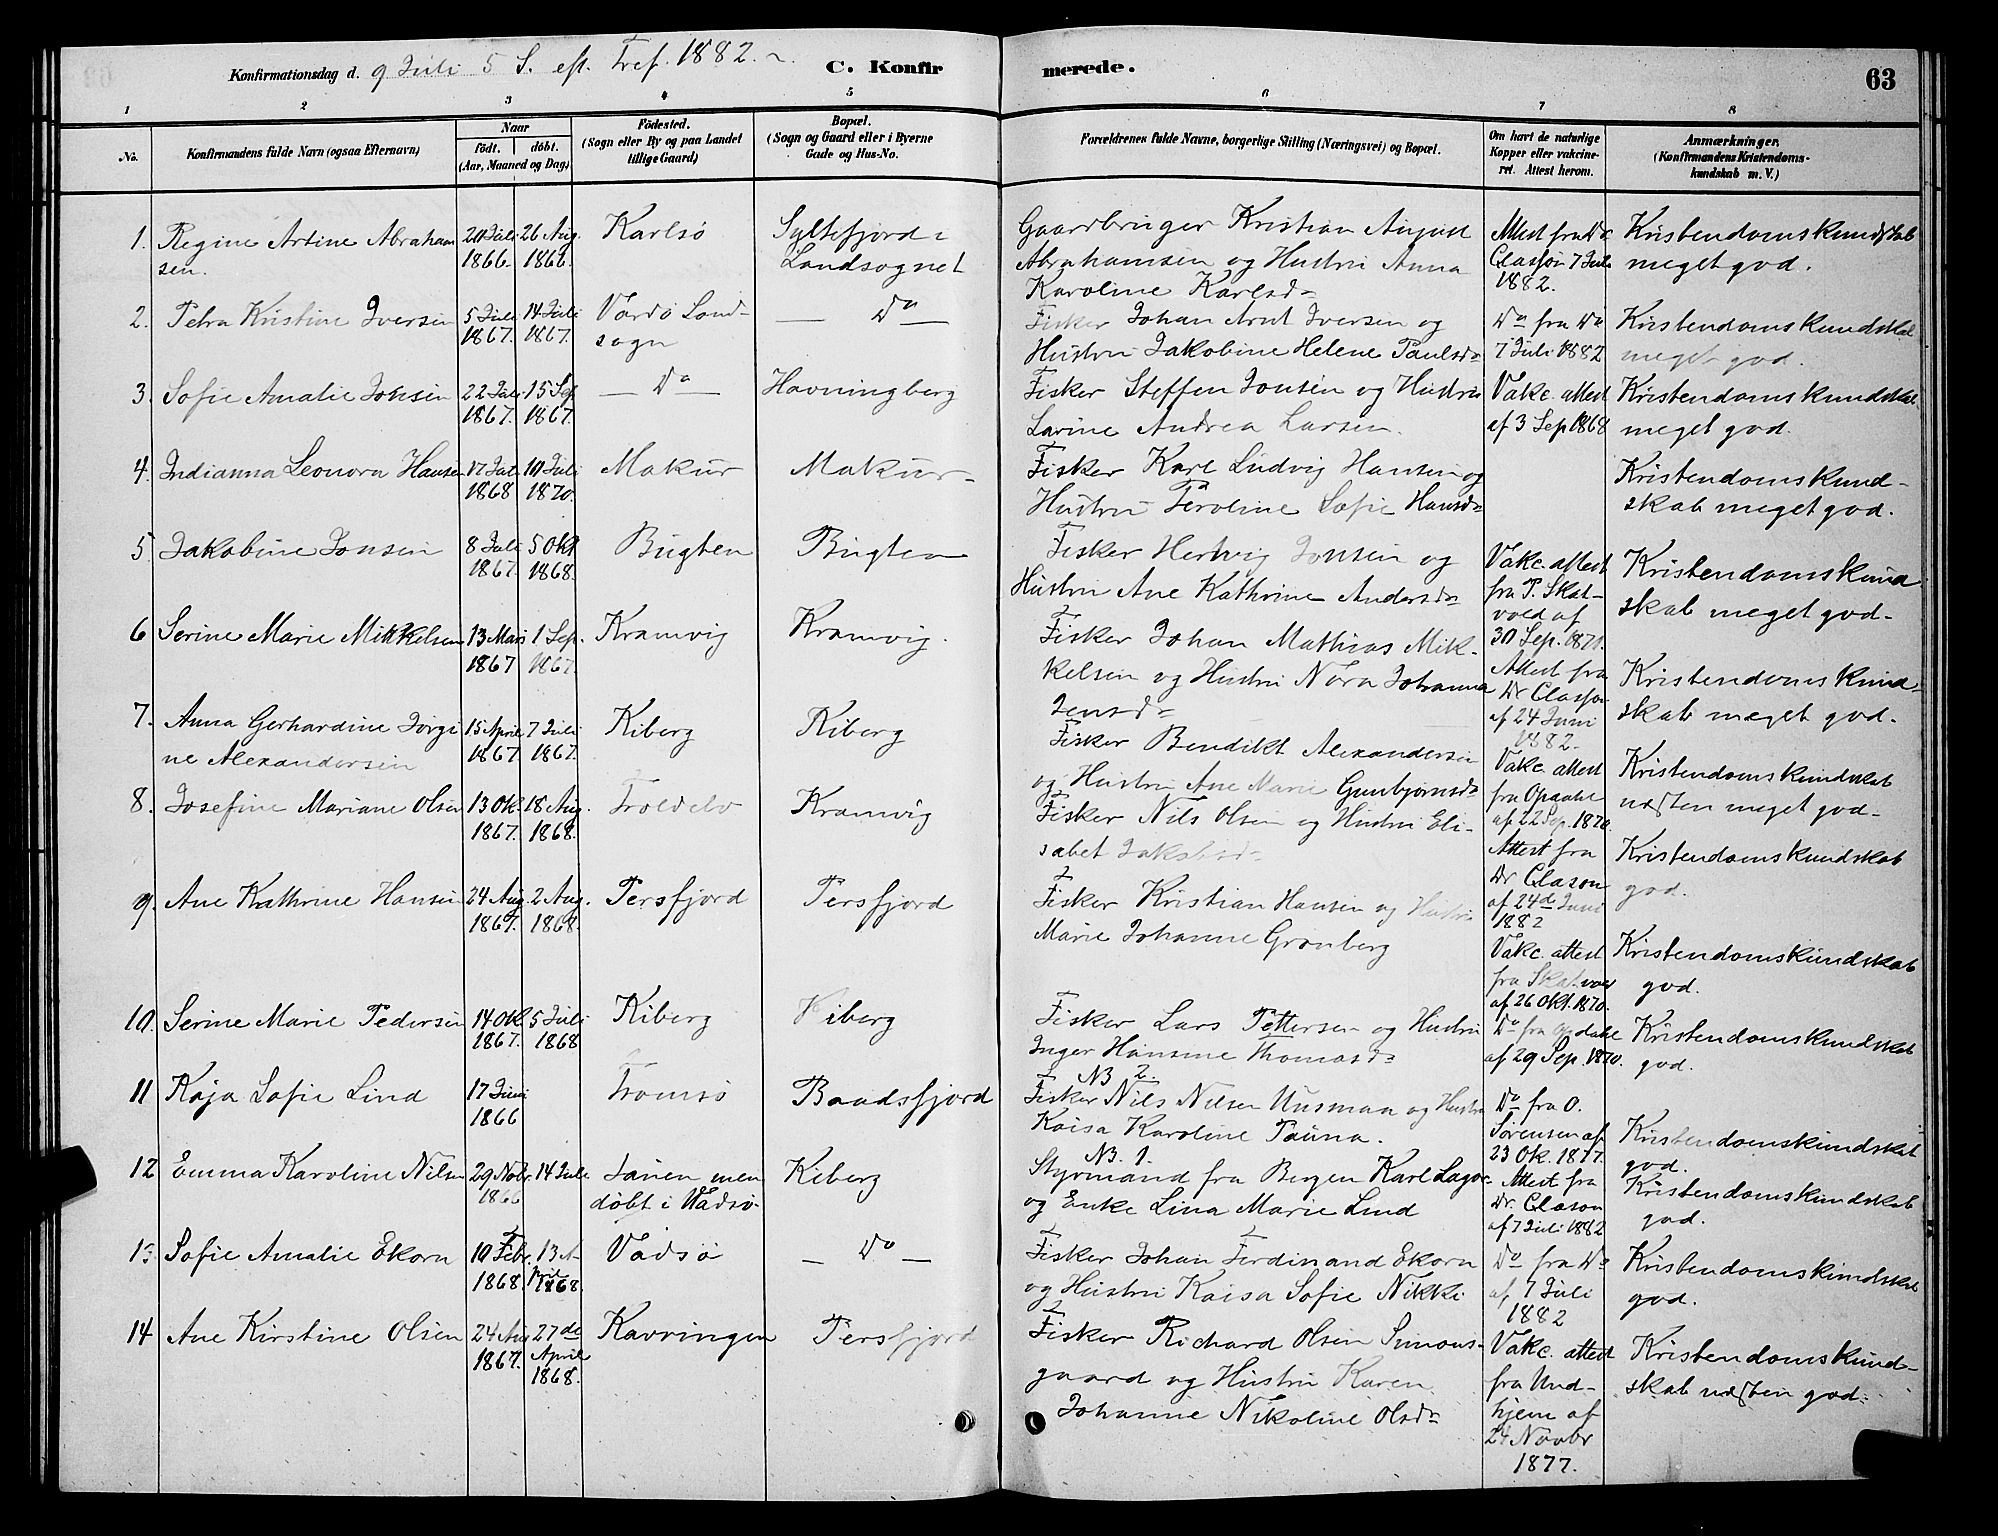 Konfirmationsdag d. 9 Juli 5 S. eft. Tref. 1882. C. Konfirmerede. 63
1 2 3 4 5 6 7 8
No. Konfirmandens fulde Navn (ogsaa Efternavn) Naar født. døbt. (Aar, Maaned og Dag) Födested. (Sogn eller By og paa Landet tillige Gaard) Bopæl. (Sogn og Gaard eller i Byerne Gade og Hus-No. Forældrenes fulde Navne, borgerlige Stilling (Næringsvei) og Bopæl. Om havt de naturlige Kopper eller vakcineret. Attest herom. Anmærkninger. (Konfirmandens Kristendomskundskab m. V.)
1. Regine Artine Abrahamsen. 20 Juli 1866. 26 Aug. 1866. Karlsö Syltefjord i Landsognet Gaardbruger Kristian August Abrahamsen og Hustru Anna Karoline Karlsd. Attest fra Dr. Classon 7 Juli 1882. Kristendomskundskab meget god.
2. Petra Kristine Iversen 5 Juli 1867. 14 Juli 1867. Vardö Landsogn — Do — Fisker Johan Arnt Iversen og Hustru Jakobine Helene Paulsd. Do fra Do 7 Juli 1882 Kristendomskundskab meget god.
3. Sofie Amalie Jonsen 22 Juli 1867. 15 Sep 1867. — Do — Havningberg Fisker Steffen Jonsen og Hustru Lavine Andrea Larsen. Vakc. attest af 3 Sep 1868 Kristendomskundskab meget god.
4. Indianna Leonora Hansen 17 Juli 1868 10 Juli 1870. Makur Makur Fisker Karl Ludvig Hansen og Hustru Peroline Sofie Hansd. Kristendomskundskab meget god.
5 Jakobine Jonsen 8 Juli 1867. 5 Okt 1868. Bugten Bugten Fisker Hertvig Jonsen og Hustru Ane Kathrine Andersd. Vakc. attest fra P. Skatvold af 30 Sep. 1871. Kristendomskundskab meget god.
6 Serine Marie Mikkelsen 13 Mars 1867 1 Sep. 1867. Kramvig Kramvig. Fisker Johan Mathias Mikkelsen og Hustru Nora Johanna Jensd. Attest fra Dr Classon af 24 Juni 1882. Kristendomskundskab meget god.
7. Anna Gerhardine Jörgine Alexandersen 15 April 1867 7 Juli 1867. Kiberg Kiberg Fisker Bendikt Alexandersen og Hustru Ane Marie Gunbjørnsd. Vakc. attest fra Opdahl af 22 Sep. 1870. Kristendomskundskab næsten meget god.
8. Josefine Mariane Olsen 13 Ok. 1867. 18 Aug. 1868. Troldelv Kramvig Fisker Nils Olsen og Hustru Elisabet Jakobsd. Attest fra Dr Clason af 24de Juni 1882 Kristendomskundskab god.
9. Ane Kathrine Hansen 24 Aug. 1867. 2 Aug. 1868. Persfjord Persfjord Fisker Kristian Hansen og Hustru Marie Johanne Grønberg Vakc. attest fra Skatvold af 26 Okt. 1870. Kristendomskundskab god.
10. Serine Marie Pedersen 14 Ok. 1867. 5 Juli 1868 Kiberg Kiberg Fisker Lars Pettersen og Hustru Inger Hansine Thomasd. Do fra Opdahl af 29 Sep. 1870. Kristendomskundskab god.
11 Kaja Sofie Lind 17 Juni 1866 Tromsö Baadsfjord NB 2. Fisker Nils Nilsen Uusmaa og Hustru Kaisa Karoline Pauna. Do fra O. Sørensen af 23 Ok. 1877. Kristendomskundskab god.
12 Emma Karoline Nilsen 29 Nobr. 1866 14 Juli døbt i Vadsö Kiberg NB. 1. Styrmand fra Bergen Karl og Enke Lina Marie Lind Attest fra Dr. Clason af 7 Juli 1882 Kristendomskundskab god.
13 Sofie Amalie Ekorn 10 Febr. 1868. 13 April 1868. Vadsö — Do — Fisker Johan Ferdinand Ekorn og Hustru Kaisa Sofie Nikki Do fra Do af 7 Juli 1882 Kristendomskundskab god.
14 Ane Kirstine Olsen 24 Aug 1867. 27de April 1868. Kavringen Persfjord Fisker Richard Olsen Simonsgaard og Hustru Karen Johanne Nikoline Olsd. Vakc. attest fra Undhjem af 24 Novbr 1877. Kristendomskundskab næsten god.